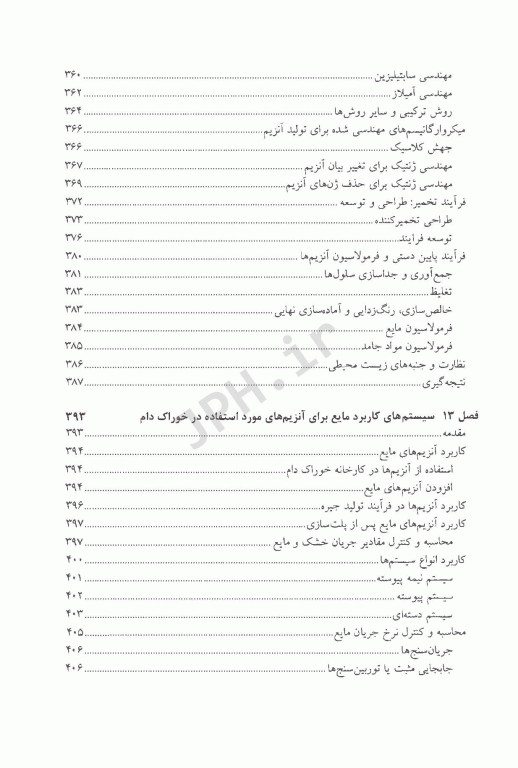 مهندسی سابتیلیزین ........ ۳۶۰
مهندسی آمیلاز ........ ۳۶۲
روش ترکیبی و سایر روش‌ها ........ ۳۶۴
میکروارگانیسم‌های مهندسی شده برای تولید آنزیم ........ ۳۶۶
جهش کلاسیک ........ ۳۶۶
مهندسی ژنتیک برای تغییر بیان آنزیم ........ ۳۶۷
مهندسی ژنتیک برای حذف ژن‌های آنزیم ........ ۳۶۹
فرآیند تخمیر: طراحی و توسعه ........ ۳۷۲
طراحی تخمیرکننده ........ ۳۷۳
توسعه فرایند ........ ۳۷۶
فرآیند پایین دستی و فرمولاسیون آنزیم‌ها ........ ۳۸۰
جمع‌آوری و جداسازی سلول‌ها ........ ۳۸۱
تغلیظ ........ ۳۸۳
خالص‌سازی، رنگ‌زدایی و آماده‌سازی نهایی ........ ۳۸۳
فرمولاسیون مایع ........ ۳۸۴
فرمولاسیون مواد جامد ........ ۳۸۵
نظارت و جنبه‌های زیست محیطی ........ ۳۸۶
نتیجه‌گیری ........ ۳۸۷
فصل ۱۳ سیستم‌های کاربرد مایع برای آنزیم‌های مورد استفاده در خوراک دام ۳۹۳
مقدمه ........ ۳۹۳
کاربرد آنزیم‌های مایع ........ ۳۹۴
استفاده از آنزیم‌ها در کارخانه خوراک دام ........ ۳۹۴
افزودن آنزیم‌های مایع ........ ۳۹۴
کاربرد آنزیم‌ها در فرآیند تولید جیره ........ ۳۹۶
کاربرد آنزیم‌های مایع پس از پلت‌سازی ........ ۳۹۷
محاسبه و کنترل مقادیر جریان خشک و مایع ........ ۳۹۷
کاربرد انواع سیستم‌ها ........ ۴۰۰
سیستم نیمه پیوسته ........ ۴۰۱
سیستم پیوسته ........ ۴۰۲
سیستم دسته‌ای ........ ۴۰۳
محاسبه و کنترل نرخ جریان مایع ........ ۴۰۵
جریان‌سنج‌ها ........ ۴۰۶
جابجایی مثبت یا توربین‌سنج‌ها ........ ۴۰۶
JPH.ir